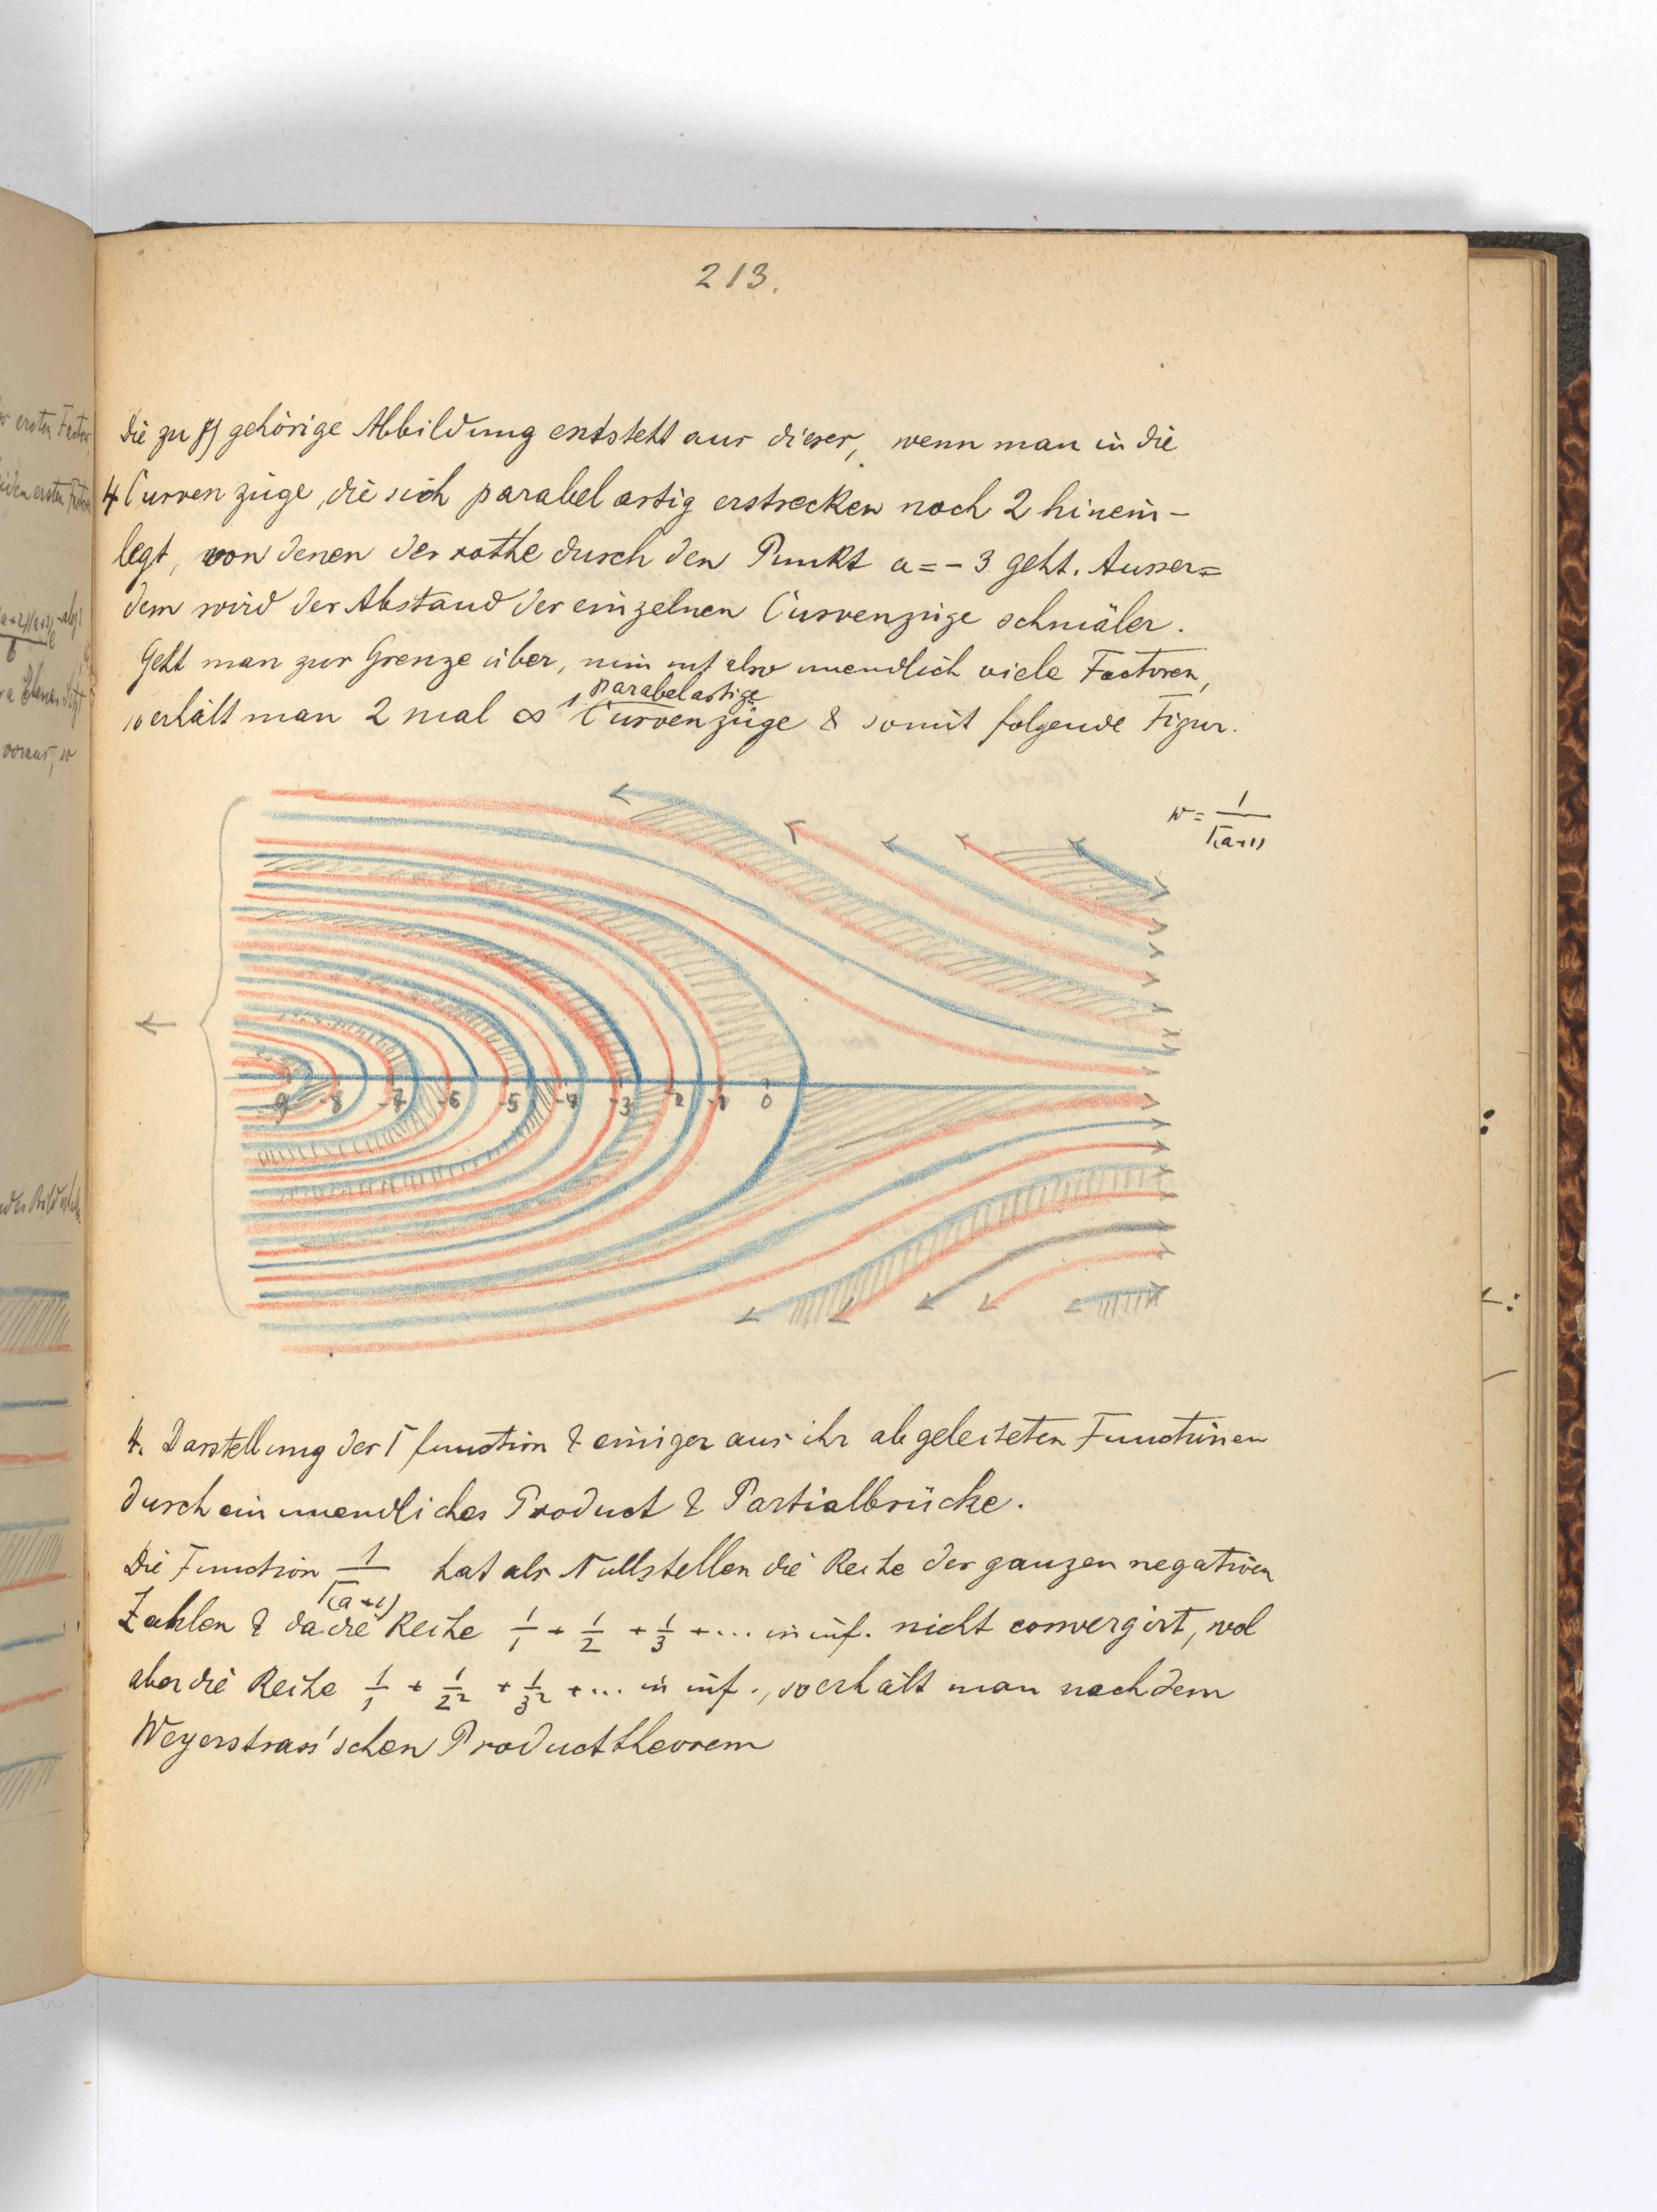 213.
Die zu γ) gehörige Abbildung entsteht aus dieser, wenn man in die
4 Curvenzüge, die sich parabelartig erstrecken noch 2 hinein-
legt, von denen der rothe durch den Punkt a = - 3 geht. Ausser=
dem wird der Abstand der einzelnen Curvenzüge schmäler.
Geht man zur Grenze über, nimmt also unendlich viele Factoren,
parabelartige
so erhält man 2 mal ∞ Curvenzüge & somit folgende Figur.
w = 1/Γ(a+1)
9 -8 -7 -6 -5 -4 -3 -2 -1 0
4. Darstellung der Γ function & einiger aus ihr abgeleiteten Functionen
durch ein unendliches Product & Partialbrüche.
Die Function 1/Γ(a+1) hat als Nullstellen die Reihe der ganzen negativen
Zahlen & da die Reihe 1/1 + 1/2 + 1/3 + ... in inf. nicht convergirt, wol
aber die Reihe 1/1 + 1/2² + 1/3² + ... in inf., so erhält man nach dem
Weyerstrass'schen Producttheorem